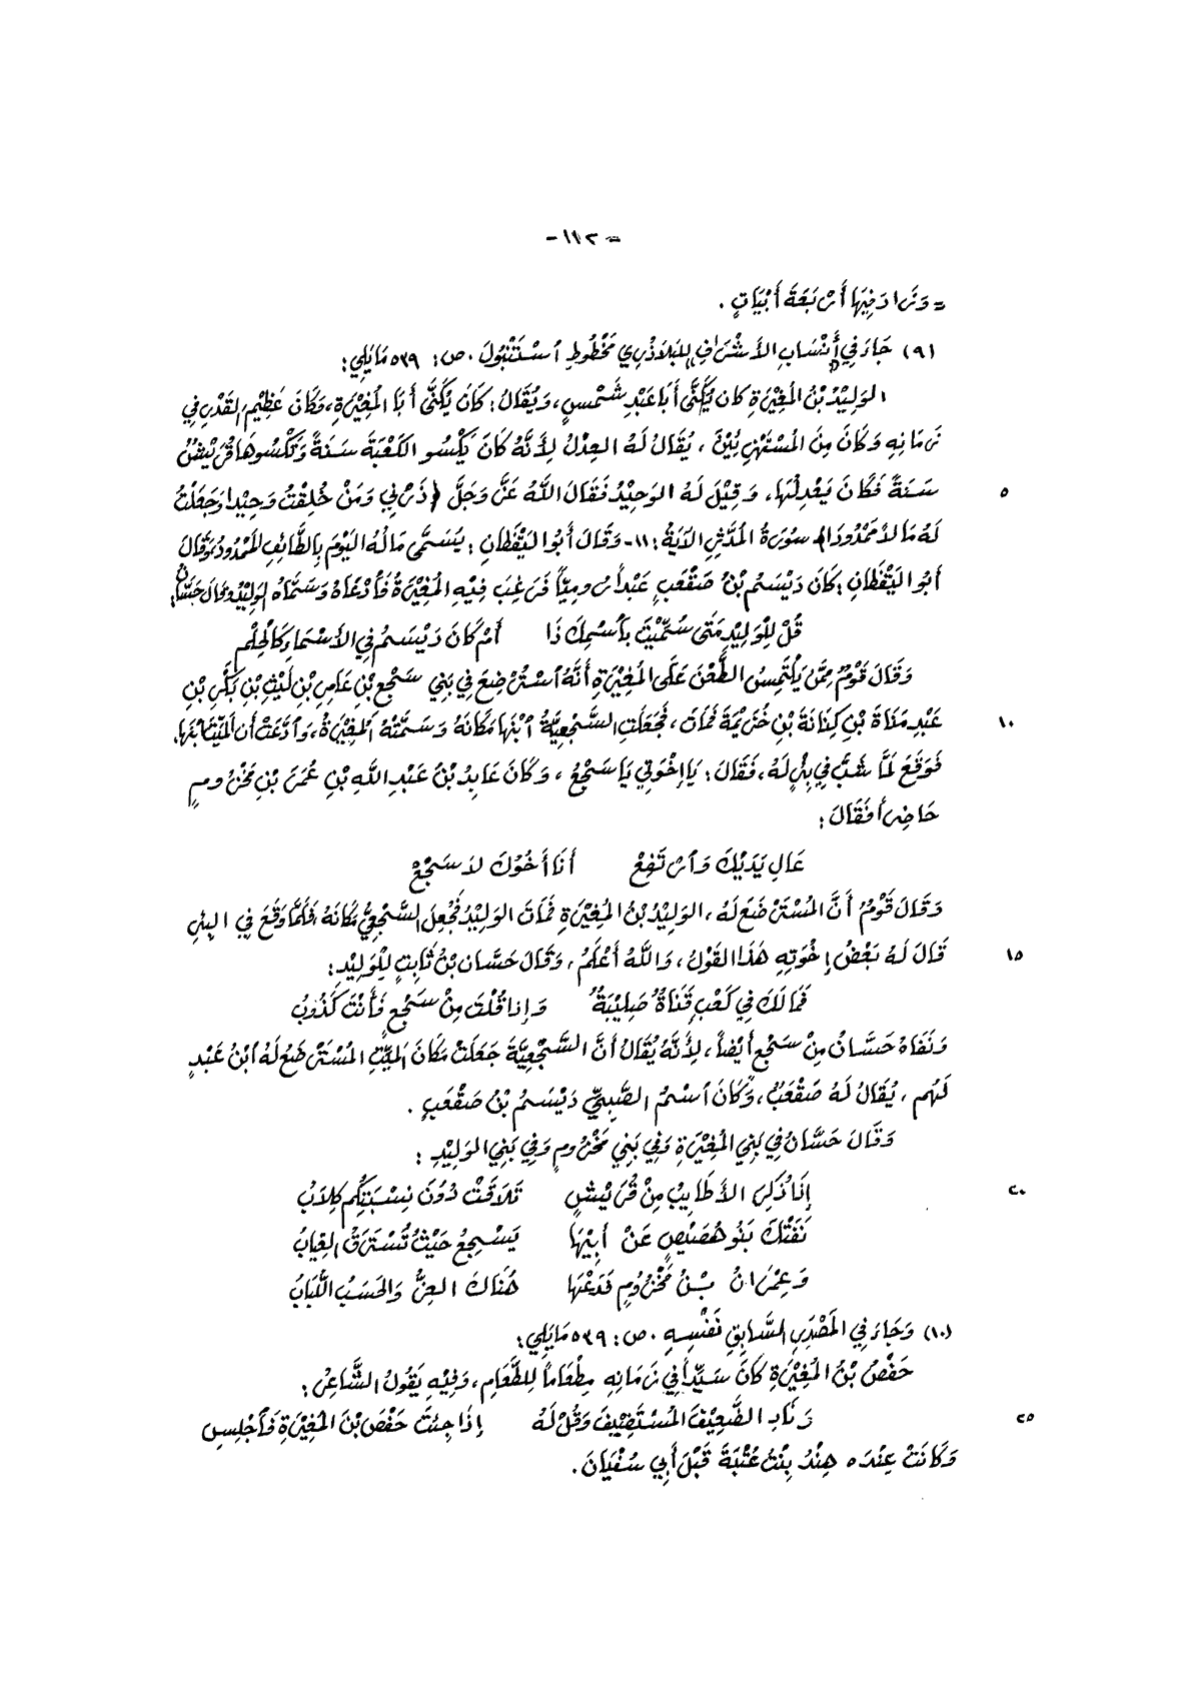 - ١١٢ =
= وَنَ ادَ فِيْهَا أَرْبَعَةَ أَبْيَاتٍ .
(٩) جَاءَ فِي أَنْسَابِ الأَشْرَافِ لِلبَلَاذُرِيِّ مَخْطُوطِ ٱسْتَنْبُولَ . ص: ٥٣٩ مَايَلِي:
الوَلِيْدُ بْنُ المُغِيْرَةِ كان يُكَنَّى أَبَا عَبْدِ شَمْسٍ، وَيُقَالُ: كَانَ يُكَنَّى أَبَا المُغِيْرَةِ، وَكَانَ عَظِيْمَ القَدْرِ فِي
زَمَانِهِ وَكَانَ مِنَ المُسْتَهْزِئِيْنَ ، يُقَالُ لَهُ العِدْلُ لِأَنَّهُ كَانَ يَكْسُو الكَعْبَةَ سَنَةً وَتَكْسُوهَا قُرَيْشٌ
٥ سَنَةً فَكَانَ يَعْدِلُهَا، وَقِيْلَ لَهُ الوَحِيْدُ فَقَالَ اللَّهُ عَزَّ وَجَلَّ ﴿ذَرْنِي وَمَنْ خُلِقْتُ وَحِيْداً وَجَعَلْتُ
لَهُ مَالاً مَمْدُودَاً﴾ سُورَةُ المُدَّثِرِ الآيَةُ: ١١- وَقَالَ أَبُو اليَقْظَانِ : يُسَمَّى مَالُهُ اليَوْمَ بِالطَّائِفِ المَمْدُودُ، وَقَالَ
أَبُو اليَقْظَانِ : كَانَ دَيْسَمُ بْنُ صَقْعَبٍ عَبْداً رومِيّاً فَرَغِبَ فِيْهِ المُغِيْرَةُ فَٱدَّعَاهُ وَسَمَّاهُ الوَلِيْدُ وقَالَ حَسَّانُ:
قُلْ لِلْوَلِيْدِ مَتَى سُمِّيْتَ بٱسْمِكَ ذَا أَمْ كَانَ دَيْسَمُ فِي الأَسْمَاءِ كَالحِلْمِ
وَقَالَ قَوْمٌ مِمَّنْ يَلْتَمِسُ الطَّعْنَ عَلَى المُغِيْرَةِ أَنَّهُ ٱسْتُرْضِعَ فِي بَنِي سَجْعِ بْنِ عَامِرِ بْنِ لَيْثِ بْنِ بَكْرِ بْنِ
١٠ عَبْدِ مَنَاةَ بْنِ كِنَانَةَ بْنِ خُزَيْمَةَ فَمَاتَ ، فَجَعَلَتِ السَّجْعِيَّةُ ٱبْنَهَا مَكَانَهُ وَسَمَّتْهُ المُغِيْرَةُ، وَٱدَّعَتْ أَنَّ المَيِّتَ ابْنُهَا،
فَوَقَعَ لَمَّا شَبَّ فِي بِئْرٍ لَهُ، فَقَالَ: يَا إِخْوَتِي يَا سَجْعُ ، وَكَانَ عَابِدُ بْنُ عَبْدِ اللَّهِ بْنِ عُمَرَ بْنِ مَخْزُومٍ
حَاضِراً فَقَالَ:
عَالِ يَدَيْكَ وَٱرْتَفِعْ أَنَا أَخُوْكَ لاَ سَجْعْ
وَقَالَ قَوْمٌ أَنَّ المُسْتَرْضَعَ لَهُ ، الوَلِيْدُ بْنُ المُغِيْرَةِ فَمَاتَ الوَلِيْدُ فَجُعِلَ السَّجْعِيُّ مَكَانَهُ، فَلَمَّا وَقَعَ فِي البِئْرِ
١٥ قَالَ لَهُ بَعْضُ إِخْوَتِهِ هَذَا القَوْلَ، وَاللَّهُ أَعْلَمُ، وَقَالَ حَسَّان بْنُ ثَابِتٍ لِلْوَلِيْدِ:
فَمَا لَكَ فِي كَعْبٍ قَنَاةٌ صَلِيْبَةٌ وَإِذا قُلْتَ مِنْ سَجْعٍ فَأَنْتَ كَذُوبُ
وَنَفَاهُ حَسَّانُ مِنْ سَجْعٍ أَيْضاً، لِأَنَّهُ يُقَالُ أَنَّ السَّجْعِيَّةَ جَعَلَتْ مَكَانَ المَيِّتِ المُسْتَرْضَعِ لَهُ ٱبْنُ عَبْدٍ
لَهُم ، يُقَالُ لَهُ صَقْعَبٌ، وَكَانَ ٱسْمُ الصَّبِيِّ دَيْسَمُ بْنُ صَقْعَبٍ .
وَقَالَ حَسَّانُ فِي بَنِي المُغِيْرَةِ وَفِي بَنِي مَخْزُومٍ وَفِي بَنِي الوَلِيْدِ :
٢٠ إِذَا ذُكِرَ الأَطَايِبُ مِنْ قُرَيْشٍ تَلاَقَتْ دُوْنَ نِسْبَتِكُم كِلاَبُ
نَفَتْكَ بَنُو هُصَيْصٍ عَنْ أَبِيْهَا يَسْجِعُ حَيْثُ تُسْتَرَقُ العِيَابُ
وَعِمْرَانُ بْنُ مَخْزُومٍ فَدَعْهَا هُنَاكَ العِزُّ وَالحَسَبُ اللُّبَابُ
(١٠) وَجَاءَ فِي المَصْدَرِ السَّابِقِ نَفْسِهِ . ص: ٥٣٩ مَايَلِي:
حَفْصُ بْنُ المُغِيْرَةِ كَانَ سَيِّداً فِي زَمَانِهِ مِطْعَاماً لِلطَّعَامِ، وَفِيْهِ يَقُولُ الشَّاعِرُ:
٢٥ وَنَادِ الضَّعِيْفَ المُسْتَضِيْفَ وَقُلْ لَهُ إِذَا جِئْتَ حَفْصَ بْنَ المُغِيْرَةِ فَٱجْلِسِ
وَكَانَتْ عِنْدَه هِنْدُ بِنْتُ عُتْبَةَ قَبْلَ أَبِي سُفْيَانَ.